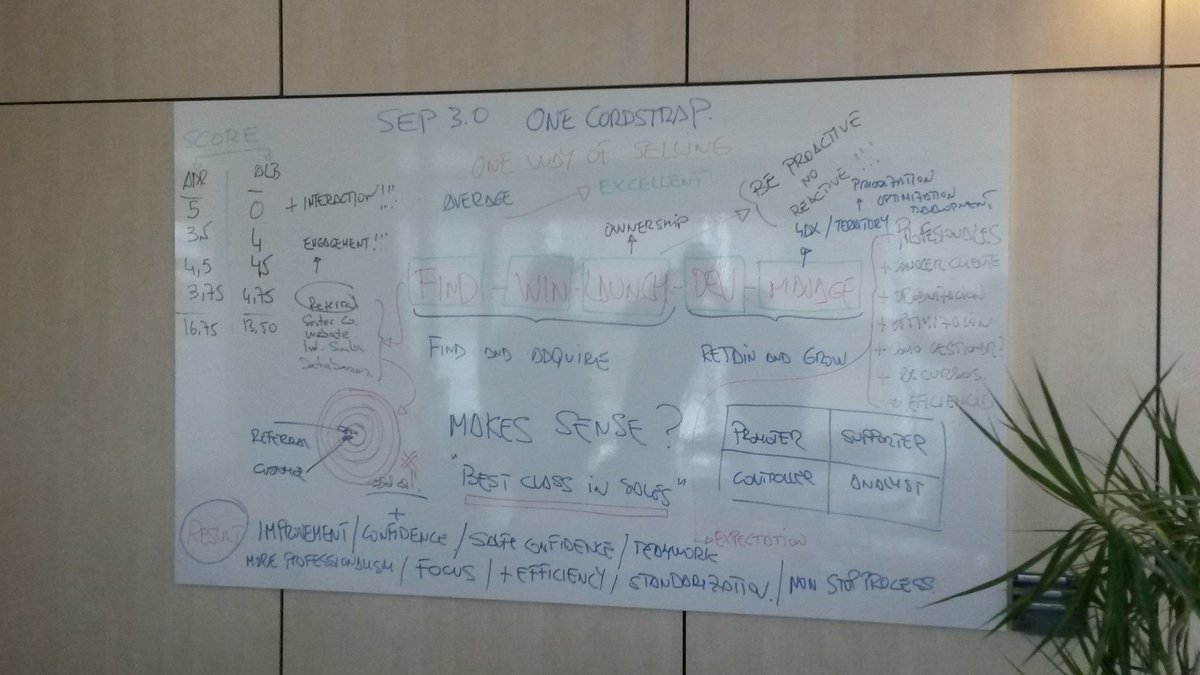 SEP 3.0 ONE CORDSTRAP.
ONE WAY OF SELLING
SCORE
ADR BLB
5 0
3,5 4
4,5 45
3,75 4,75
16,75 13,50
+ INTERACTION!!!
ENGAGEMENT!!!
AVERAGE
EXCELLENT
OWNERSHIP
BE PROACTIVE
NO
REACTIVE!!!
PRIORIZATION
OPTIMIZATION
4DX / TERRITORY
FIND - WIN - LAUNCH - DEV - MANAGE
FIND AND ADQUIRE
RETAIN AND GROW
Referral
Website
+ PROFESIONALES
+ ORGANIZACION
+ OPTIMIZACION
+ COMO GESTIONAR?
+ RECURSOS.
EFICIENCIA
REFERRAL
CUSTOMER
MAKES SENSE?
"BEST CLASS IN SALES"
PROMOTER SUPPORTER
CONTROLLER ANALYST
EXPECTATION
RESULT
IMPROVEMENT / + CONFIDENCE / SAFE CONFIDENCE / TEAMWORK
MORE PROFESSIONALISM / FOCUS / + EFFICIENCY / STANDARIZATION. / NON STOP PROCESS